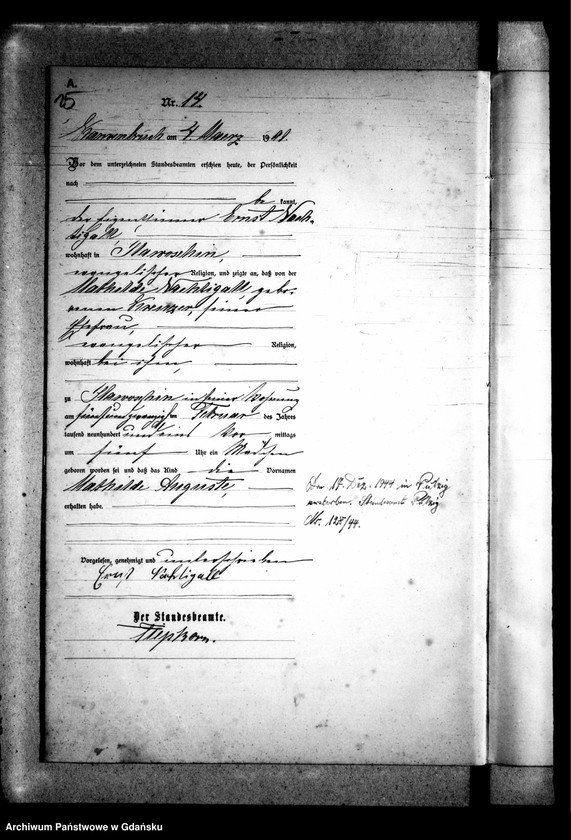 A.
15
Nr. 14.
am 4 Maerz 1901.
Vor dem unterzeichneten Standesbeamten erschien heute, der Persönlichkeit
nach
be kannt,
der Eigentümer Ernst Nach-
tigall
wohnhaft in
evangelischer Religion, und zeigte an, daß von der
Mathilde Nachtigall, gebo-
renen Krenzer, seiner
Ehefrau,
evangelischer Religion,
wohnhaft bei ihm,
zu in seiner Wohnung
am fünfundzwanzigsten Februar des Jahres
tausend neunhundert und eins Vor mittags
um fünf Uhr ein Mädchen
geboren worden sei und daß das Kind die Vornamen
Mathilde Auguste,
erhalten habe.
Vorgelesen, genehmigt und unterschrieben
Ernst Nachtigall
Der Standesbeamte.
Am 17. Dez. 1944 in Putzig
verstorben. Standesamt Putzig
Nr. /44.
Archiwum Państwowe w Gdańsku